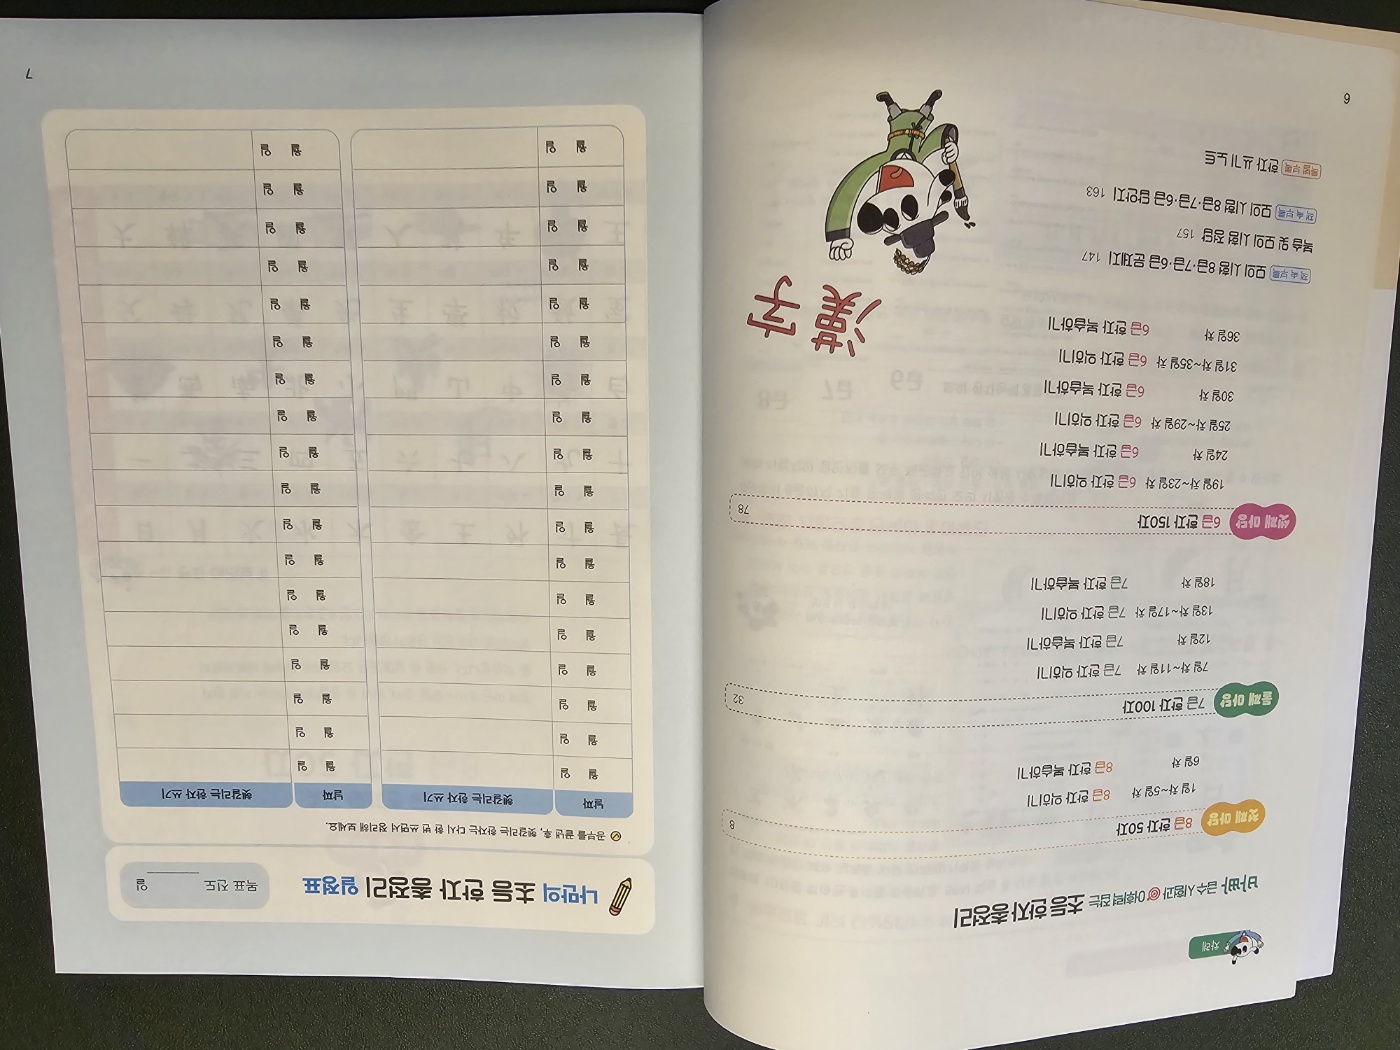 차례
바빠 급수 시험과 어휘력 잡는 초등 한자 총정리
첫째 마당 8급 한자 50자 8
1일 차~5일 차 8급 한자 익히기
6일 차 8급 한자 복습하기
둘째 마당 7급 한자 100자 32
7일 차~11일 차 7급 한자 익히기
12일 차 7급 한자 복습하기
13일 차~17일 차 7급 한자 익히기
18일 차 7급 한자 복습하기
셋째 마당 6급 한자 150자 78
19일 차~23일 차 6급 한자 익히기
24일 차 6급 한자 복습하기
25일 차~29일 차 6급 한자 익히기
30일 차 6급 한자 복습하기
31일 차~35일 차 6급 한자 익히기
36일 차 6급 한자 복습하기
책 속 부록 모의 시험 8급·7급·6급 문제지 147
복습 및 모의 시험 정답 157
책 속 부록 모의 시험 8급·7급·6급 답안지 163
특별 부록 한자 쓰기 노트
漢字
6
나만의 초등 한자 총정리 일정표
목표 진도 ______ 일
공부를 끝낸 후, 헷갈리는 한자는 다시 한 번 쓰면서 정리해 보세요.
날짜 헷갈리는 한자 쓰기 날짜 헷갈리는 한자 쓰기
월 일 월 일
월 일 월 일
월 일 월 일
월 일 월 일
월 일 월 일
월 일 월 일
월 일 월 일
월 일 월 일
월 일 월 일
월 일 월 일
월 일 월 일
월 일 월 일
월 일 월 일
월 일 월 일
월 일 월 일
월 일 월 일
월 일 월 일
월 일 월 일
7